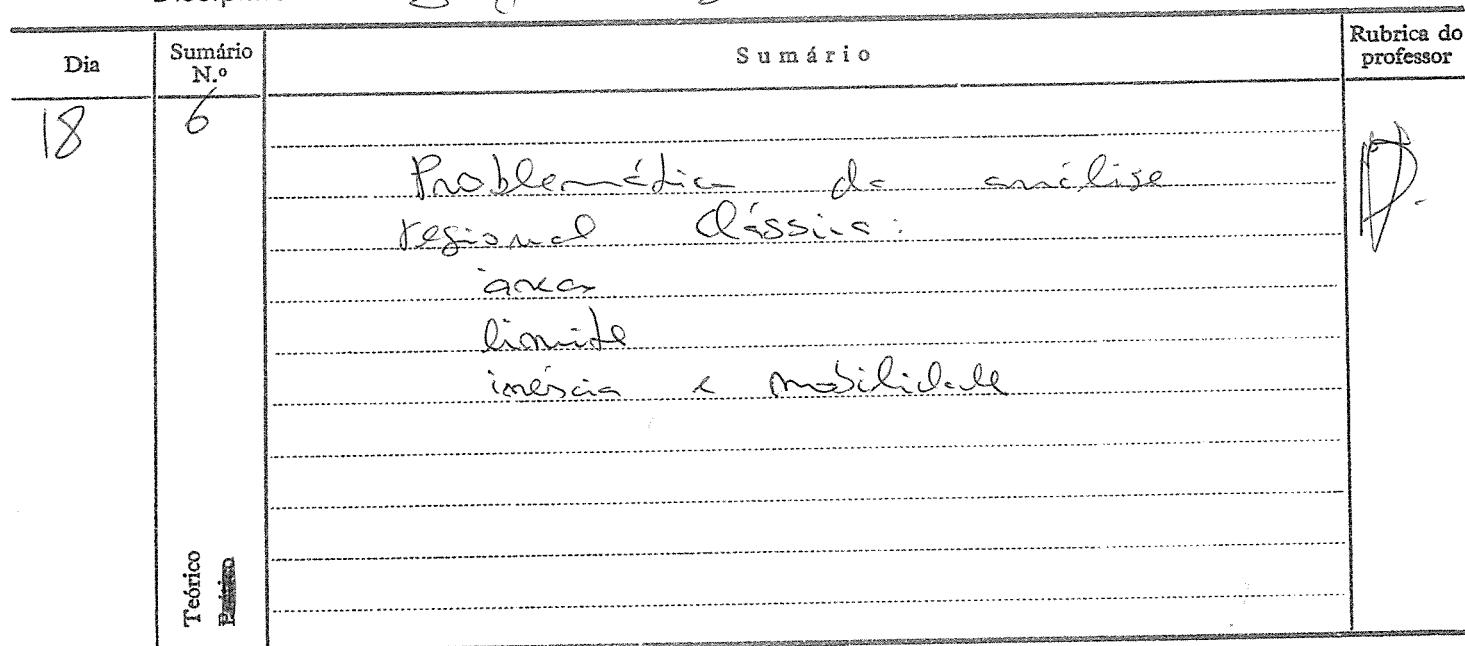 Dia
Sumário N.º
Sumário
Rubrica do professor
18
6
Problemática da análise
regional clássica:
área
limite
inércia e mobilidade
Teórico
Prático